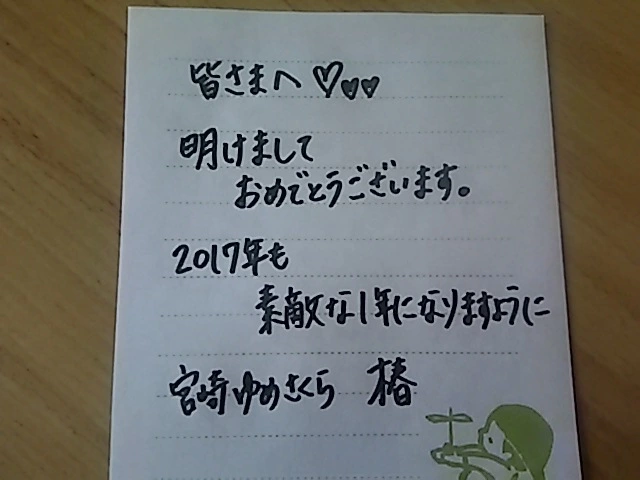 皆さまへ♡♡♡
明けまして
おめでとうございます。
2017年も
素敵な1年になりますように
宮崎ゆめさくら 椿